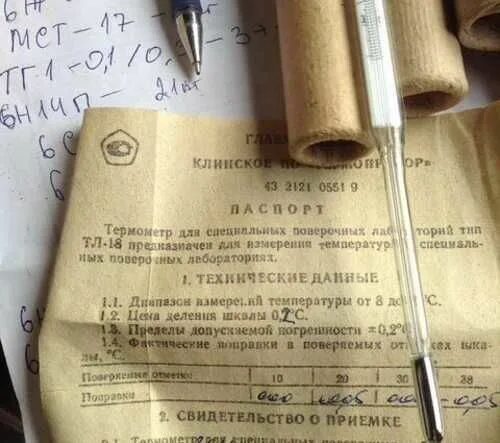 6Ж
МСТ-17-
ТГ1-0,1/0,3-3
6Н14П- 21шт
6
ГЛАВ
КЛИНСКОЕ ПО МОПРИБОР»
43 2121 0551 9
ПАСПОРТ
Термометр для специальных поверочных лабораторий тип
ТЛ-18 предназначен для измерения температуры специаль-
ных поверочных лабораториях.
1. ТЕХНИЧЕСКИЕ ДАННЫЕ
1.1. Диапазон измерений температуры от 8 до °С.
1.2. Цена деления шкалы 0,2°С.
1.3. Пределы допускаемой погрешности ±0,2°С
1.4. Фактические поправки в поверяемых отметках шка-
лы, °С.
Поверяемые отметки 10 20 30 38
Поправки 0,00 -0,05 -0,05
2. СВИДЕТЕЛЬСТВО О ПРИЕМКЕ
2.1. Термометр для специальных поверочных